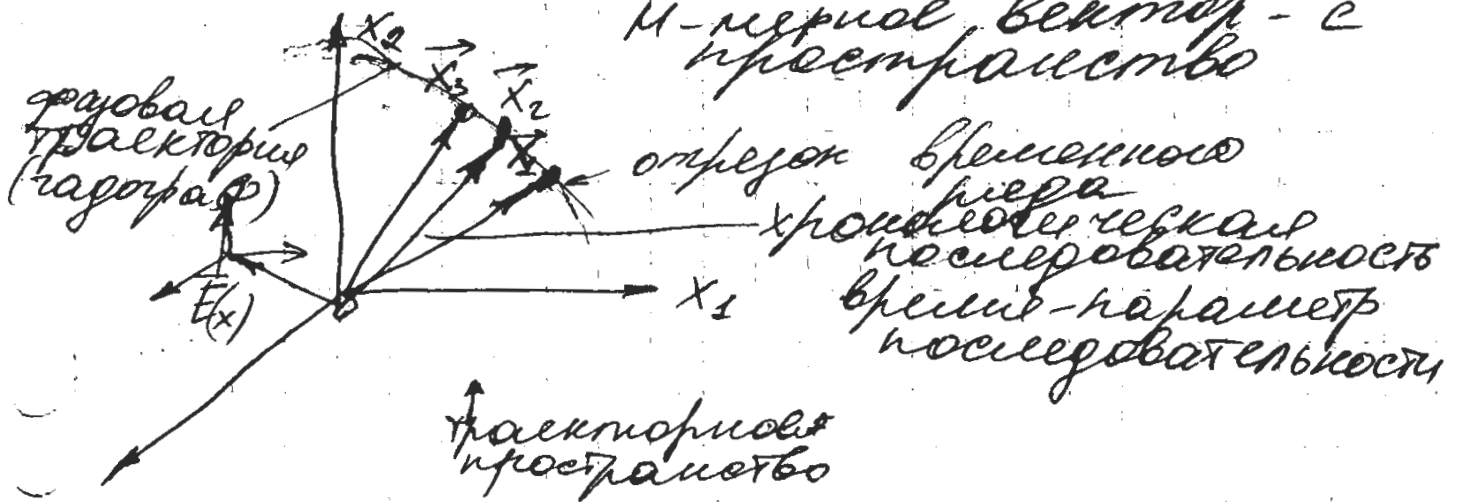 М-мерное вектор - с
пространство
X₂
X⃗₃
X⃗₂
X⃗₁
фазовая
траектория
(годограф)
отрезок временного
ряда
хронологическая
последовательность
E⃗(x)
X₁
время-параметр
последовательности
траекторное
пространство